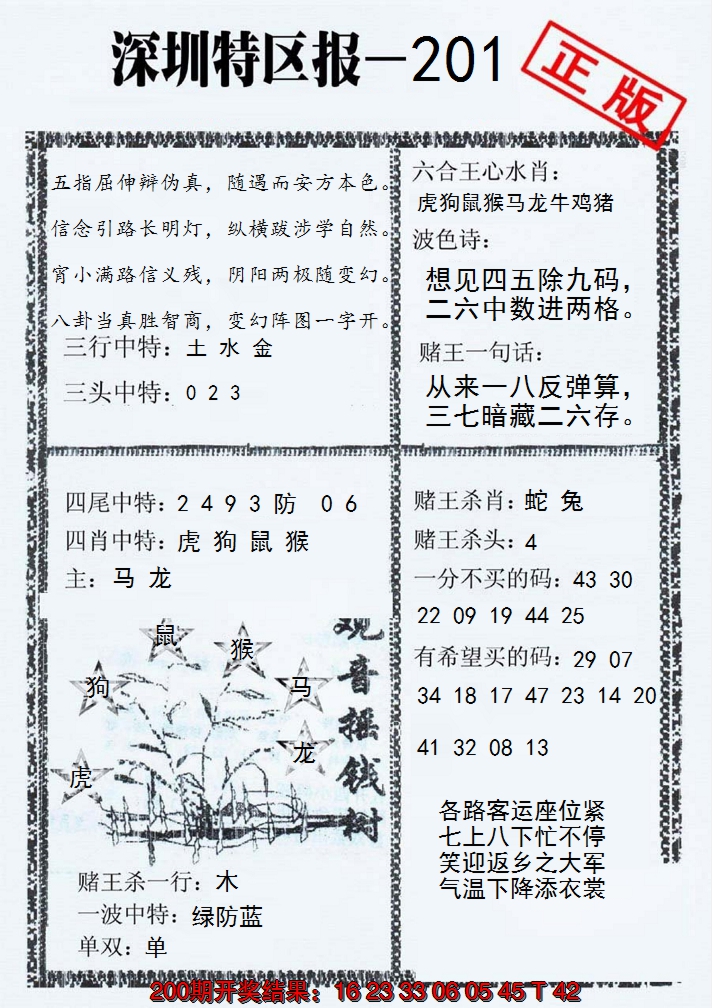 深圳特区报—201
正版
五指屈伸辩伪真，随遇而安方本色。
信念引路长明灯，纵横跋涉学自然。
宵小满路信义残，阴阳两极随变幻。
八卦当真胜智商，变幻阵图一字开。
三行中特：土 水 金
三头中特：0 2 3
六合王心水肖：
虎狗鼠猴马龙牛鸡猪
波色诗：
想见四五除九码，
二六中数进两格。
赌王一句话：
从来一八反弹算，
三七暗藏二六存。
四尾中特：2 4 9 3 防 0 6
四肖中特：虎 狗 鼠 猴
主：马 龙
鼠
猴
狗
马
龙
虎
观音摇钱树
赌王杀一行：木
一波中特：绿防蓝
单双：单
赌王杀肖：蛇 兔
赌王杀头：4
一分不买的码：43 30
22 09 19 44 25
有希望买的码：29 07
34 18 17 47 23 14 20
41 32 08 13
各路客运座位紧
七上八下忙不停
笑迎返乡之大军
气温下降添衣裳
200期开奖结果：16 23 33 06 05 45 T 42